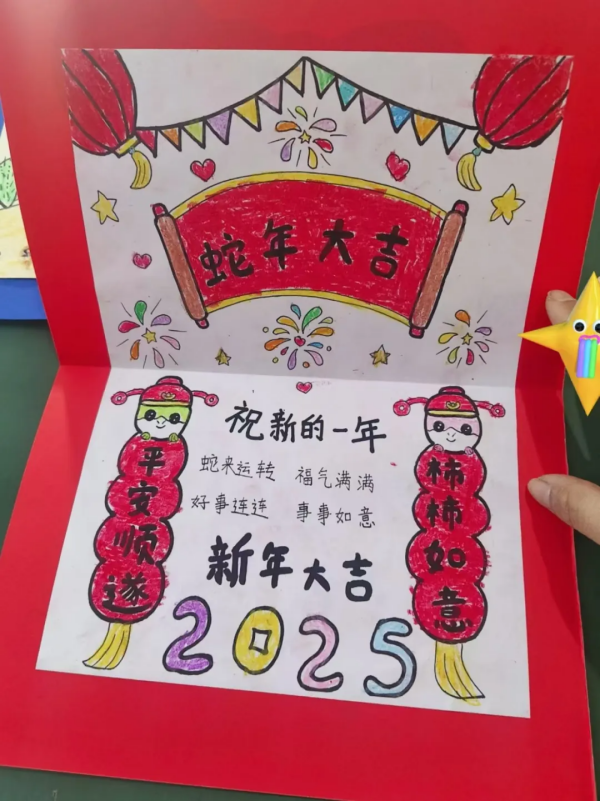 蛇年大吉
祝新的一年
蛇来运转 福气满满
好事连连 事事如意
新年大吉
2025
平安顺遂
柿柿如意